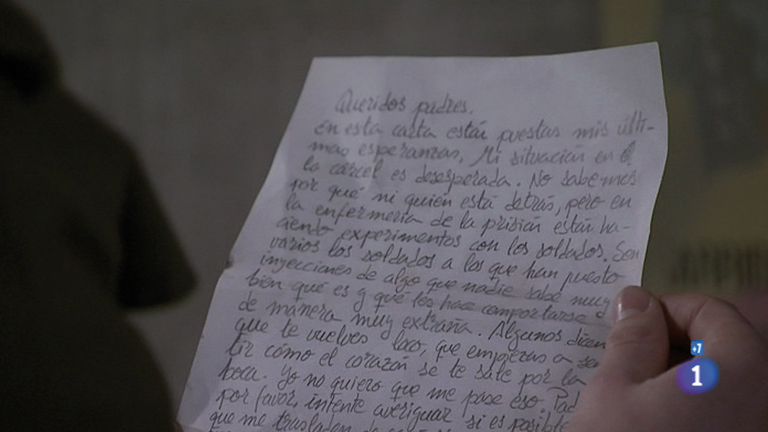 Queridos padres.
En esta carta están puestas mis últi-
mas esperanzas, Mi situación en
la cárcel es desesperada. No sabemos
por qué ni quién está detrás, pero en
la enfermería de la prisión están ha-
ciendo experimentos con los soldados. Son
varios los soldados a los que han puesto
inyecciones de algo que nadie sabe muy
bien qué es y que los hace comportarse
de manera muy extraña. Algunos dicen
que te vuelves loco, que empiezas a sen
tir cómo el corazón se te sale por la
boca. Yo no quiero que me pase eso. Pad
por favor, intente averiguar si es posible
que me trasladen de
+7
1